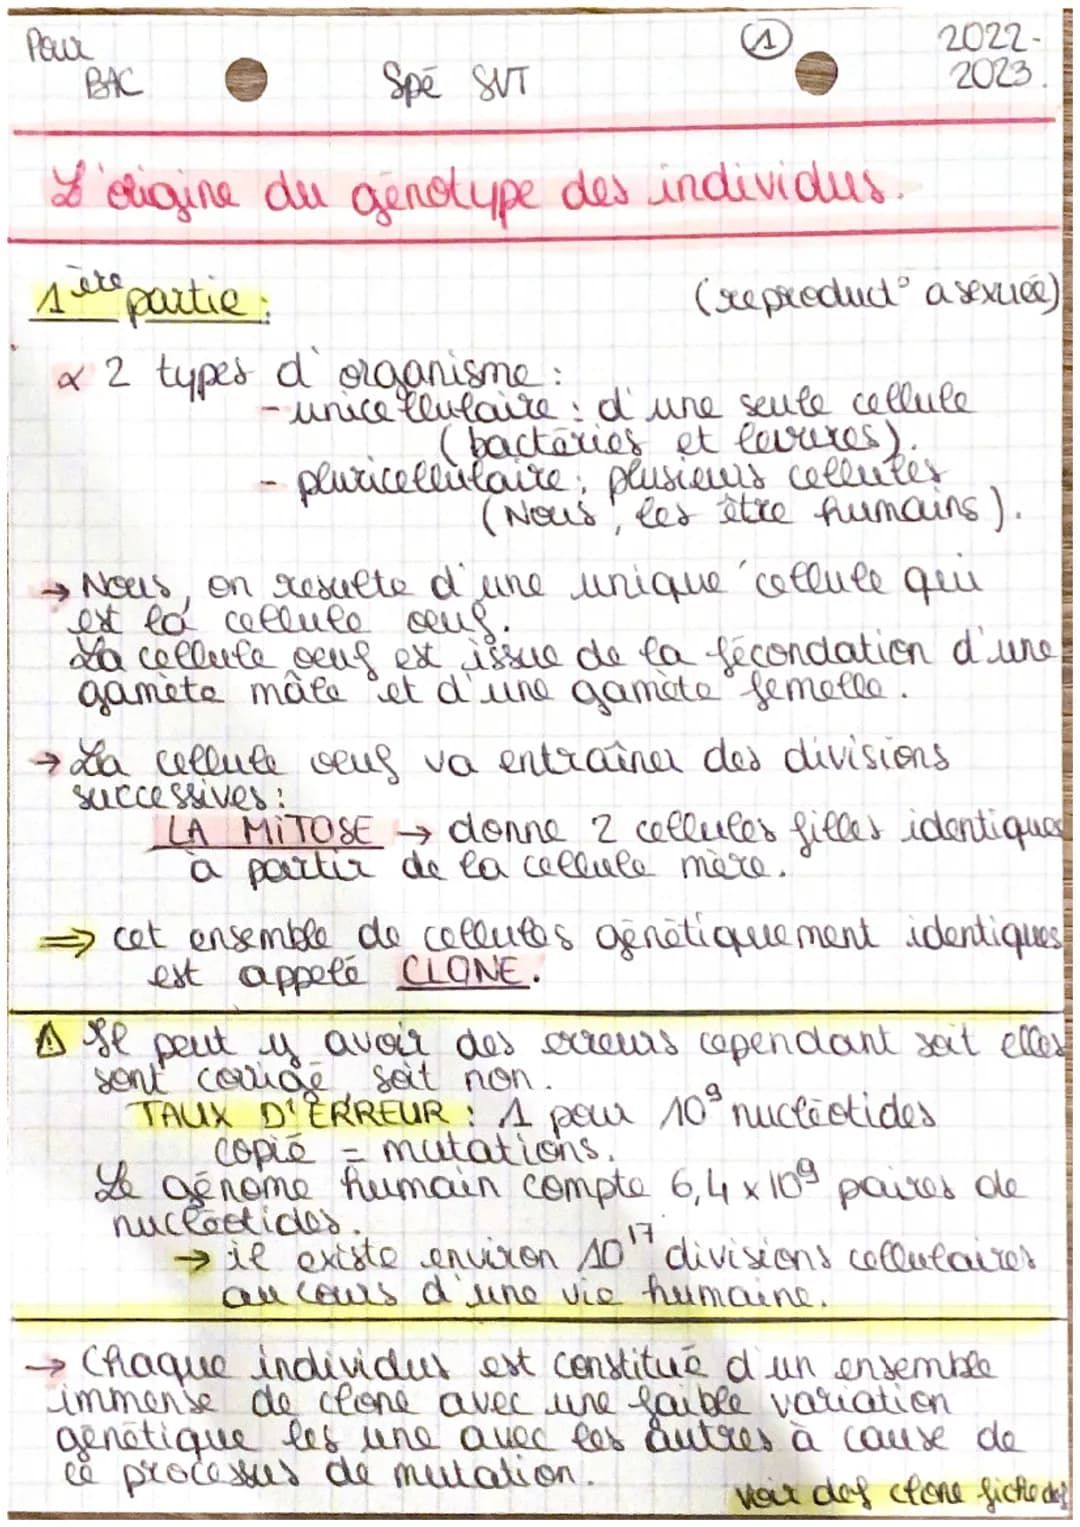 Pour
BAC
Spé SVT
1
2022-
2023.
L'origine du génotype des individus.
1ère partie :
(reproduct° asexuée)
α 2 types d'organisme :
- unicellulaire : d'une seule cellule
(bactéries et levures).
- pluricellulaire : plusieurs cellules
(Nous, les être humains).
→ Nous, on resulte d'une unique cellule qui
est la cellule oeuf.
La cellule oeuf est issue de la fécondation d'une
gamète mâle et d'une gamète femelle.
→ La cellule oeuf va entraîner des divisions
successives :
LA MITOSE → donne 2 cellules filles identiques
à partir de la cellule mère.
⇒ cet ensemble de cellules génétiquement identiques
est appelé CLONE.
⚠ Il peut y avoir des erreurs cependant soit elles
sont corrigé soit non.
TAUX D'ERREUR : 1 pour 10⁹ nucléotides
copié = mutations.
Le génome humain compte 6,4 x 10⁹ paires de
nucléotides.
→ il existe environ 10¹⁷ divisions cellulaires
au cours d'une vie humaine.
→ Chaque individus est constitué d'un ensemble
immense de clone avec une faible variation
génétique les une avec les autres à cause de
ce processus de mutation.
voir def clone fiche def